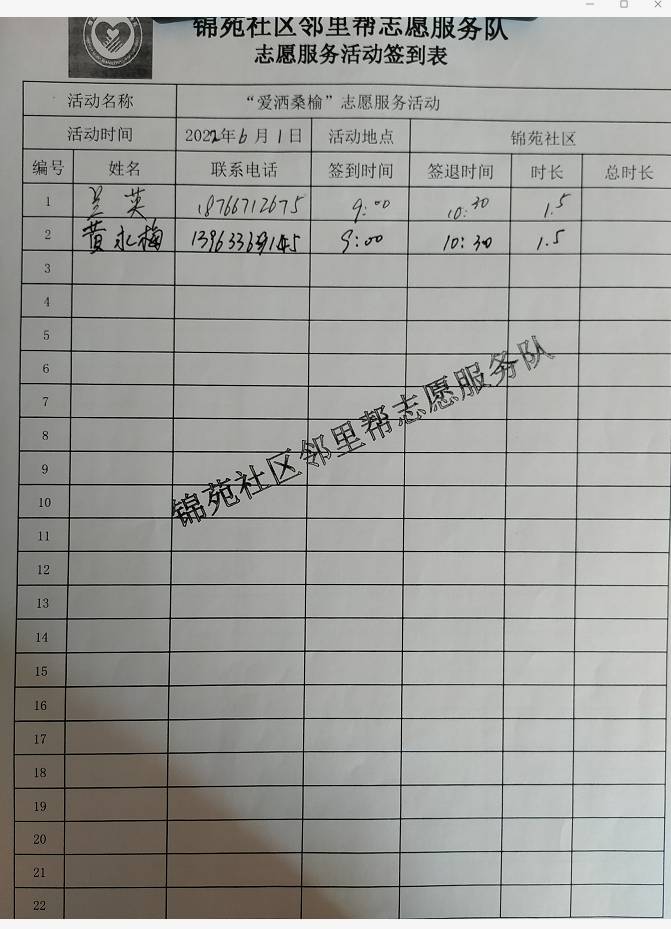 锦苑社区邻里帮志愿服务队
志愿服务活动签到表
活动名称 “爱洒桑榆”志愿服务活动
活动时间 2022年6月1日 活动地点 锦苑社区
编号 姓名 联系电话 签到时间 签退时间 时长 总时长
1 兰英 18766712675 9:00 10:30 1.5
2 黄永梅 9:00 10:30 1.5
3
4
5
6
7
8
9
10
11
12
13
14
15
16
17
18
19
20
21
22
锦苑社区邻里帮志愿服务队